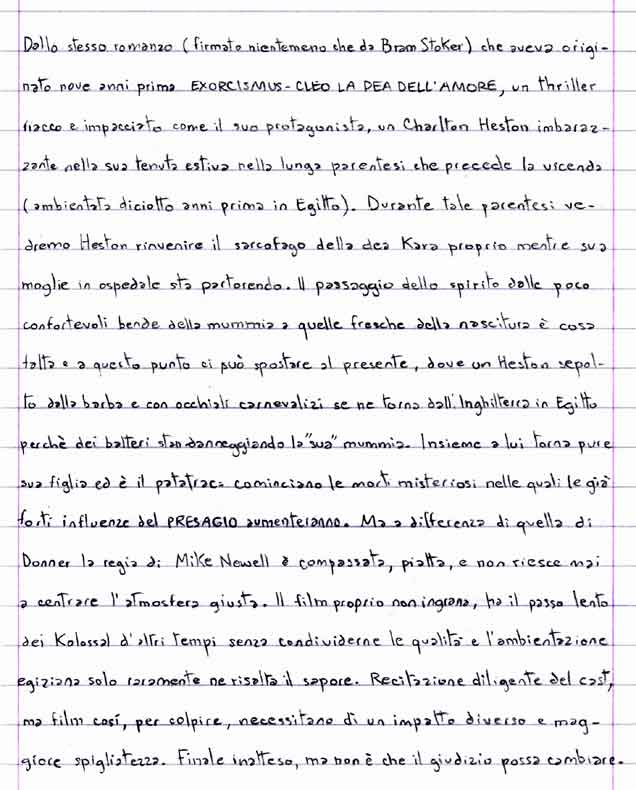 Dallo stesso romanzo (firmato nientemeno che da Bram Stoker) che aveva origi-
nato nove anni prima EXORCISMUS - CLEO LA DEA DELL'AMORE, un thriller
fiacco e impacciato come il suo protagonista, un Charlton Heston imbaraz-
zante nella sua tenuta estiva nella lunga parentesi che precede la vicenda
(ambientata diciotto anni prima in Egitto). Durante tale parentesi ve-
dremo Heston rinvenire il sarcofago della dea Kara proprio mentre sua
moglie in ospedale sta partorendo. Il passaggio dello spirito dalle poco
confortevoli bende della mummia a quelle fresche della nascitura è cosa
fatta e a questo punto ci può spostare al presente, dove un Heston sepol-
to dalla barba e con occhiali carnevalizi se ne torna dall'Inghilterra in Egitto
perchè dei batteri stan danneggiando la "sua" mummia. Insieme a lui torna pure
sua figlia ed è il patatrac: cominciano le morti misteriosi nelle quali le già
forti influenze del PRESAGIO aumenteranno. Ma a differenza di quella di
Donner la regia di Mike Newell è compassata, piatta, e non riesce mai
a centrare l'atmosfera giusta. Il film proprio non ingrana, ha il passo lento
dei Kolossal d'altri tempi senza condividerne le qualità e l'ambientazione
egiziana solo raramente ne risalta il sapore. Recitazione diligente del cast,
ma film così, per colpire, necessitano di un impatto diverso e mag-
giore spigliatezza. Finale inatteso, ma non è che il giudizio possa cambiare.